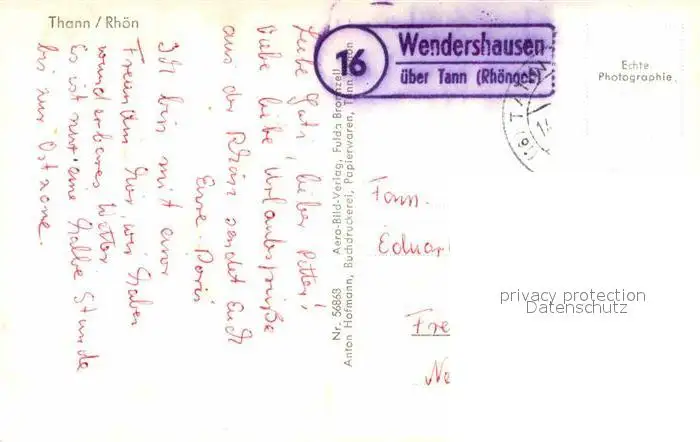 Thann / Rhön
Liebe Gabi, lieber Peter!
Viele liebe Urlaubsgrüße
aus der Rhön sendet Euch
Eure Doris
Ich bin mit einer
Freundin hier, wir haben
wunderbares Wetter
Es ist nur eine halbe Stunde
bis zur Ostzone.
Nr. 56863 Aero-Bild-Verlag, Fulda
Anton Hofmann, Buchdruckerei, Papierwaren, Tann
16
Wendershausen
über Tann (Rhöngeb)
Echte
Photographie
Fam.
Eduar
Fre
Ne
privacy protection
Datenschutz